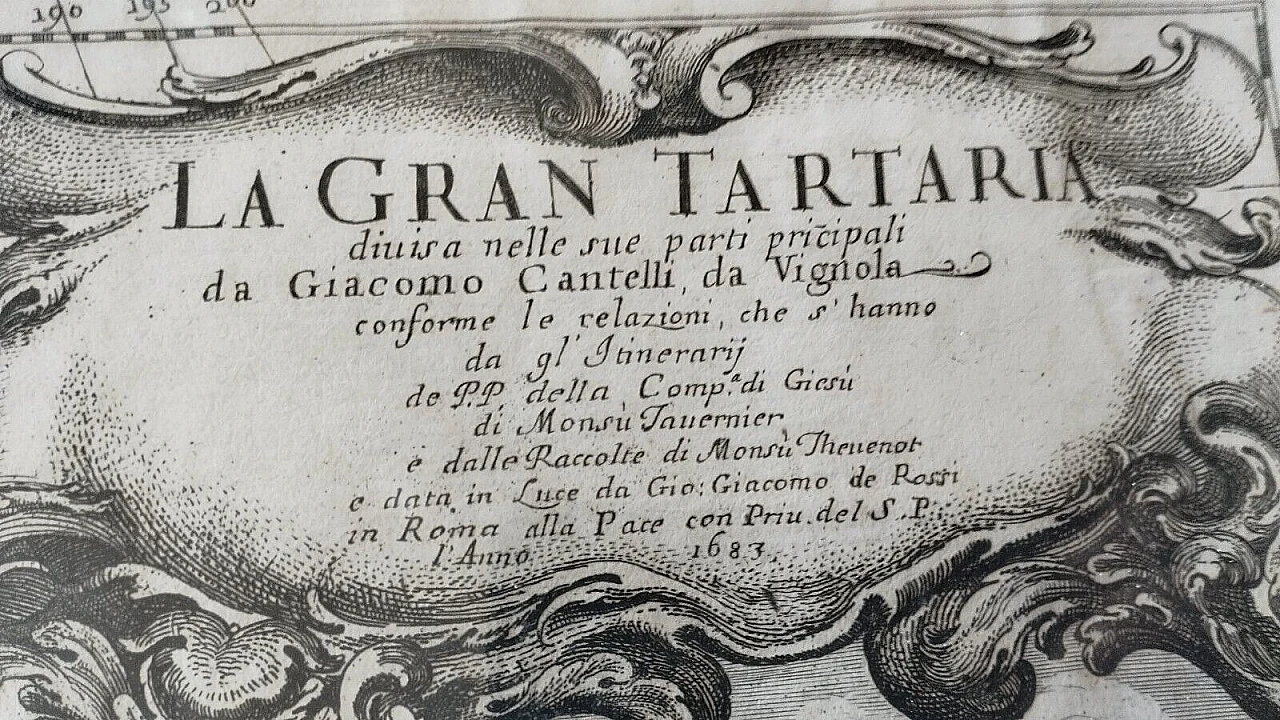 190 195 200
LA GRAN TARTARIA
diuisa nelle sue parti prĩcipali
da Giacomo Cantelli, da Vignola
conforme le relazioni, che s' hanno
da gl' Itinerarij
de P.P. della Comp.ª di Giesù
di Monsù Tauernier
e dalle Raccolte di Monsù Theuenot
e data in Luce da Gio: Giacomo de Rossi
in Roma alla Pace con Priu. del S. P.
l'Anno 1683.